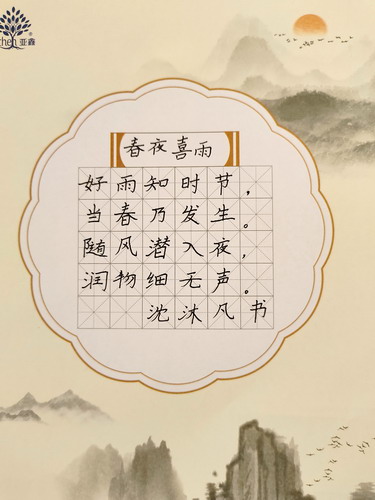 chen 亚鑫
春夜喜雨
好雨知时节，
当春乃发生。
随风潜入夜，
润物细无声。
沈沐凡书